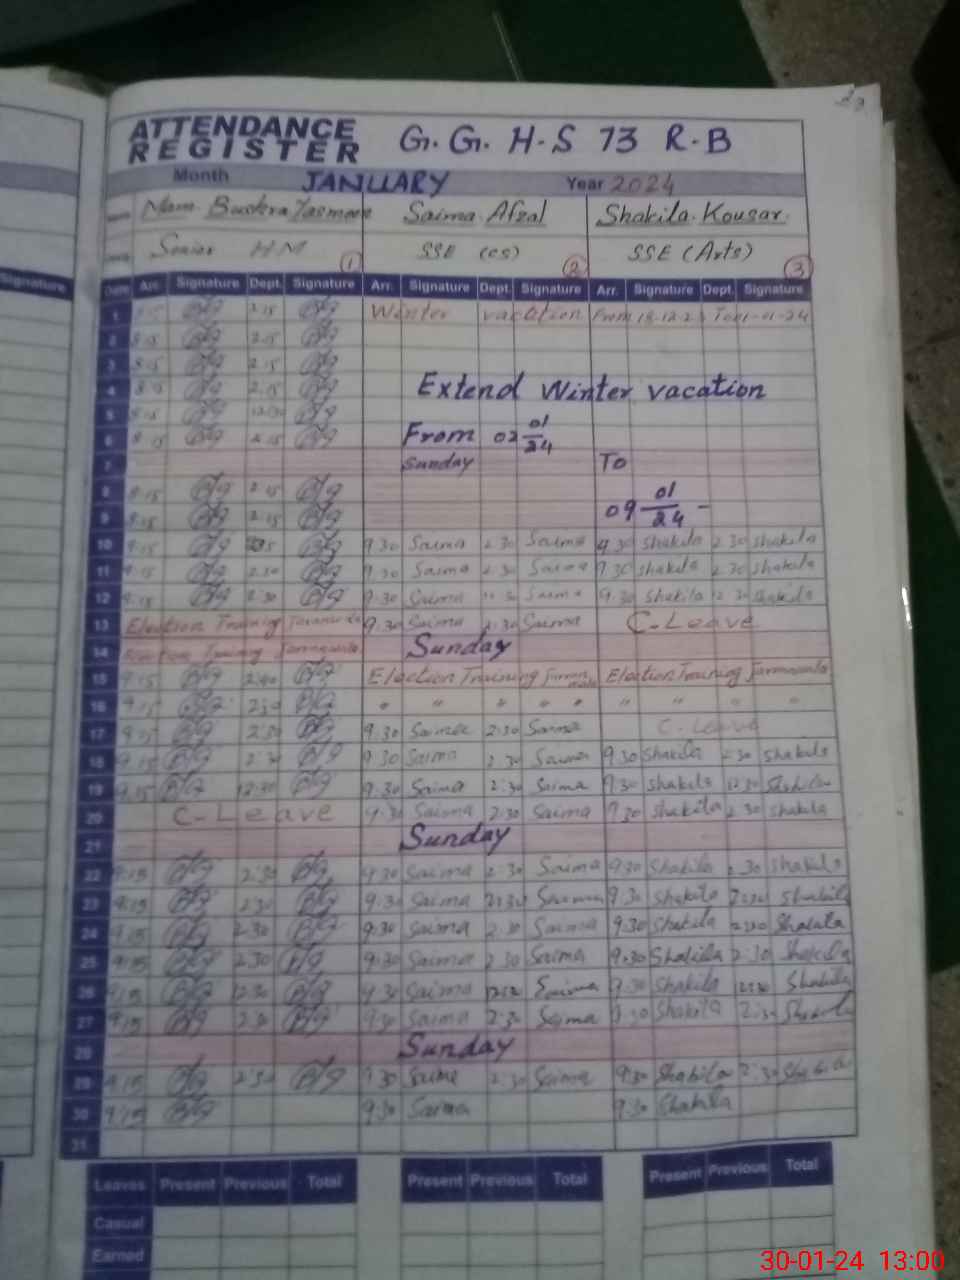 23
ATTENDANCE REGISTER G. G. H-S 73 R-B
Month JANUARY Year 2024
Name Mam. Bushra Yasmeen Saima Afzal Shakila Kousar.
Senior HM 1 SSE (cs) 2 SSE (Arts) 3
Signature
Date Arr. Signature Dept. Signature Arr. Signature Dept. Signature Arr. Signature Dept. Signature
1 8:15 2:15 Winter vacation From 18-12-23 To 01-01-24
2 8:15 2:15
3 8:15 2:15
4 8:15 2:15 Extend Winter vacation
5 8:15 12:30
6 8:15 2:15 From 02 01/24
7 Sunday To
8 8:15 2:15
9 8:15 2:15 09 01/24 -
10 9:15 9:30 Saima 2:30 Saima 9:30 Shakila 2:30 Shakila
11 9:15 2:30 9:30 Saima 2:30 Saima 9:30 Shakila 2:30 Shakila
12 9:15 2:30 9:30 Saima Saima 9:30 Shakila Shakila
13 Election Training 9:30 Saima 2:30 Saima C-Leave
14 Election Training Sunday
15 9:15 Election Training Election Training
16 9:15 2:30 " " " " " " " "
17 9:15 2:30 9:30 Saima 2:30 Saima C-Leave
18 9:15 2:30 9:30 Saima 2:30 Saima 9:30 Shakila 2:30 Shakila
19 9:15 12:30 9:30 Saima 2:30 Saima 9:30 Shakila 12:30 Shakila
20 C-Leave 9:30 Saima 2:30 Saima 9:30 Shakila 2:30 Shakila
21 Sunday
22 9:15 2:30 9:30 Saima 2:30 Saima 9:30 Shakila 2:30 Shakila
23 9:15 2:30 9:30 Saima 2:30 Saima 9:30 Shakila 2:30 Shakila
24 9:15 2:30 9:30 Saima 2:30 Saima 9:30 Shakila 2:30 Shakila
25 9:15 2:30 9:30 Saima 2:30 Saima 9:30 Shakila 2:30 Shakila
26 9:15 12:30 9:30 Saima 12:30 Saima 9:30 Shakila 12:30 Shakila
27 9:15 2:30 9:30 Saima 2:30 Saima 9:30 Shakila 2:30 Shakila
28 Sunday
29 9:15 2:30 9:30 Saima 2:30 Saima 9:30 Shakila 2:30 Shakila
30 9:15 9:30 Saima 9:30 Shakila
31
Leaves Present Previous Total Present Previous Total Present Previous Total
Casual
Earned
30-01-24 13:00